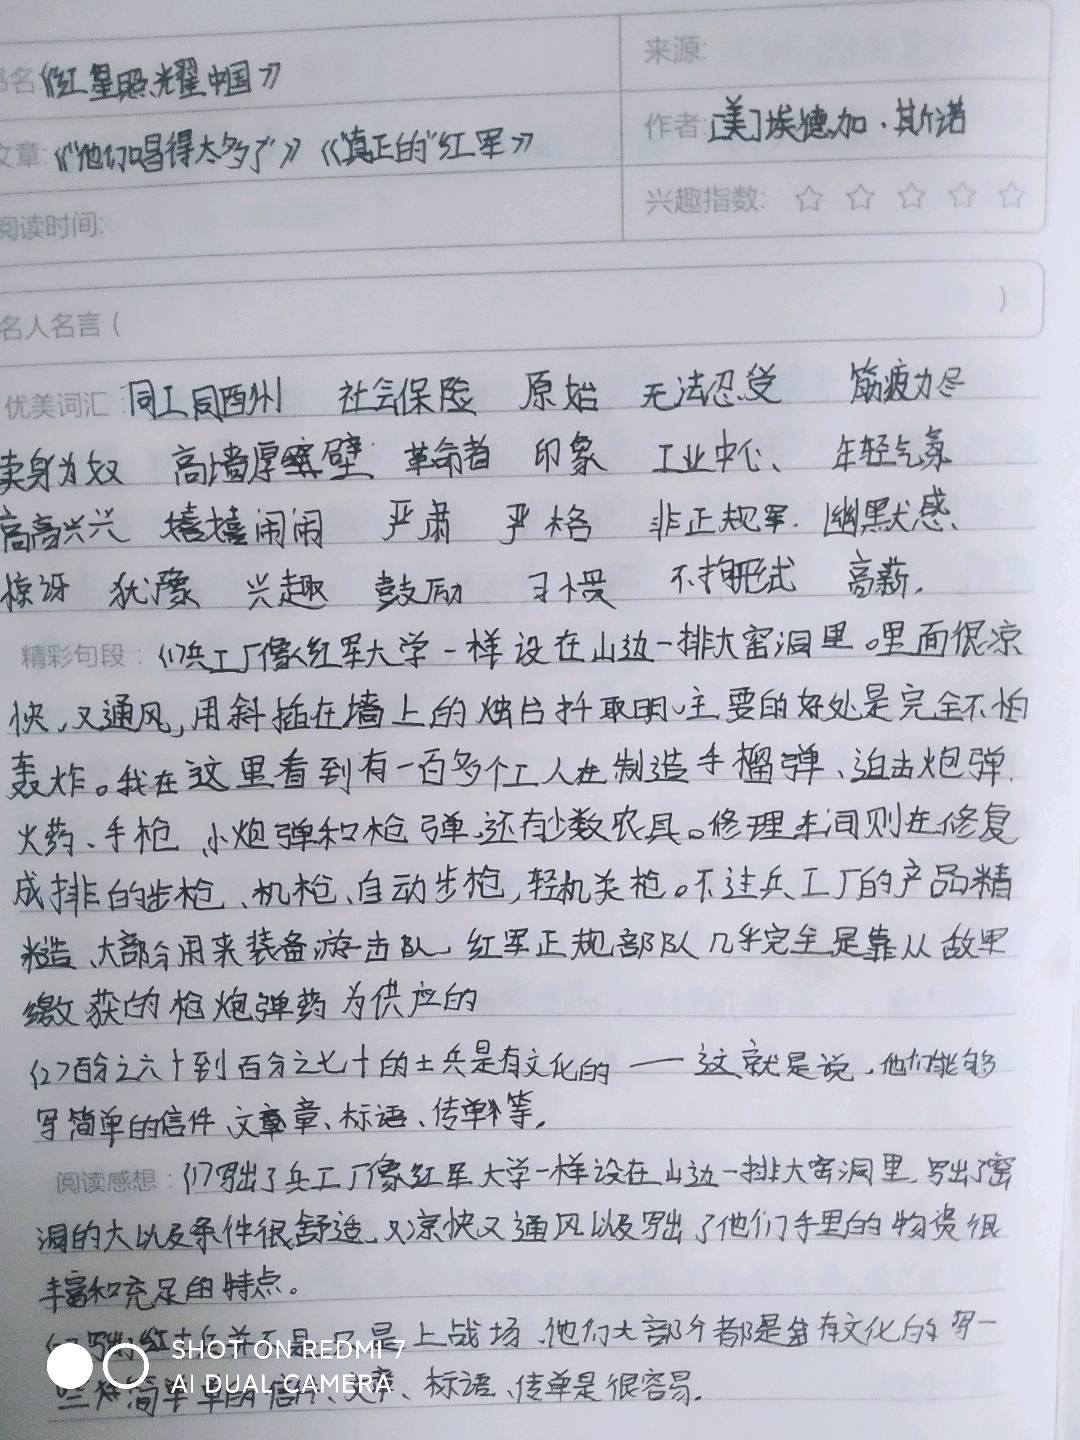 书名:《红星照耀中国》
来源:
文章:《“他们唱得太多了”》《“真正的”红军》
作者:[美]埃德加·斯诺
阅读时间:
兴趣指数: ☆ ☆ ☆ ☆ ☆
名人名言( )
优美词汇:同工同酬 社会保险 原始 无法忍受 筋疲力尽
卖身为奴 高墙厚壁 革命者 印象 工业中心、 年轻气象
高高兴兴 嬉嬉闹闹 严肃 严格 非正规军. 幽默感、
惊讶 犹豫 兴趣 鼓励 习惯 不拘形式 高薪.
精彩句段:(1)兵工厂像红军大学一样设在山边一排大窑洞里。里面很凉
快,又通风,用斜插在墙上的烛台取明,主要的好处是完全不怕
轰炸。我在这里看到有一百多个工人在制造手榴弹、迫击炮弹、
火药、手枪、小炮弹和枪弹,还有少数农具。修理车间则在修复
成排的步枪、机枪、自动步枪,轻机关枪。不过兵工厂的产品粗
糙、大部分用来装备游击队,红军正规部队几乎完全是靠从敌军
缴获的枪炮弹药为供应的
(2)百分之六十到百分之七十的士兵是有文化的——这就是说,他们能够
写简单的信件、文章、标语、传单等.
阅读感想:(1)写出了兵工厂像红军大学一样设在山边一排大窑洞里,写出了窑
洞的大以及条件很舒适,又凉快又通风以及写出了他们手里的物资很
丰富和充足的特点。
(2)写出红士兵并不是只是上战场,他们大部分都是有文化的,写一
些简单的信件、文章、标语、传单是很容易.
SHOT ON REDMI 7
AI DUAL CAMERA